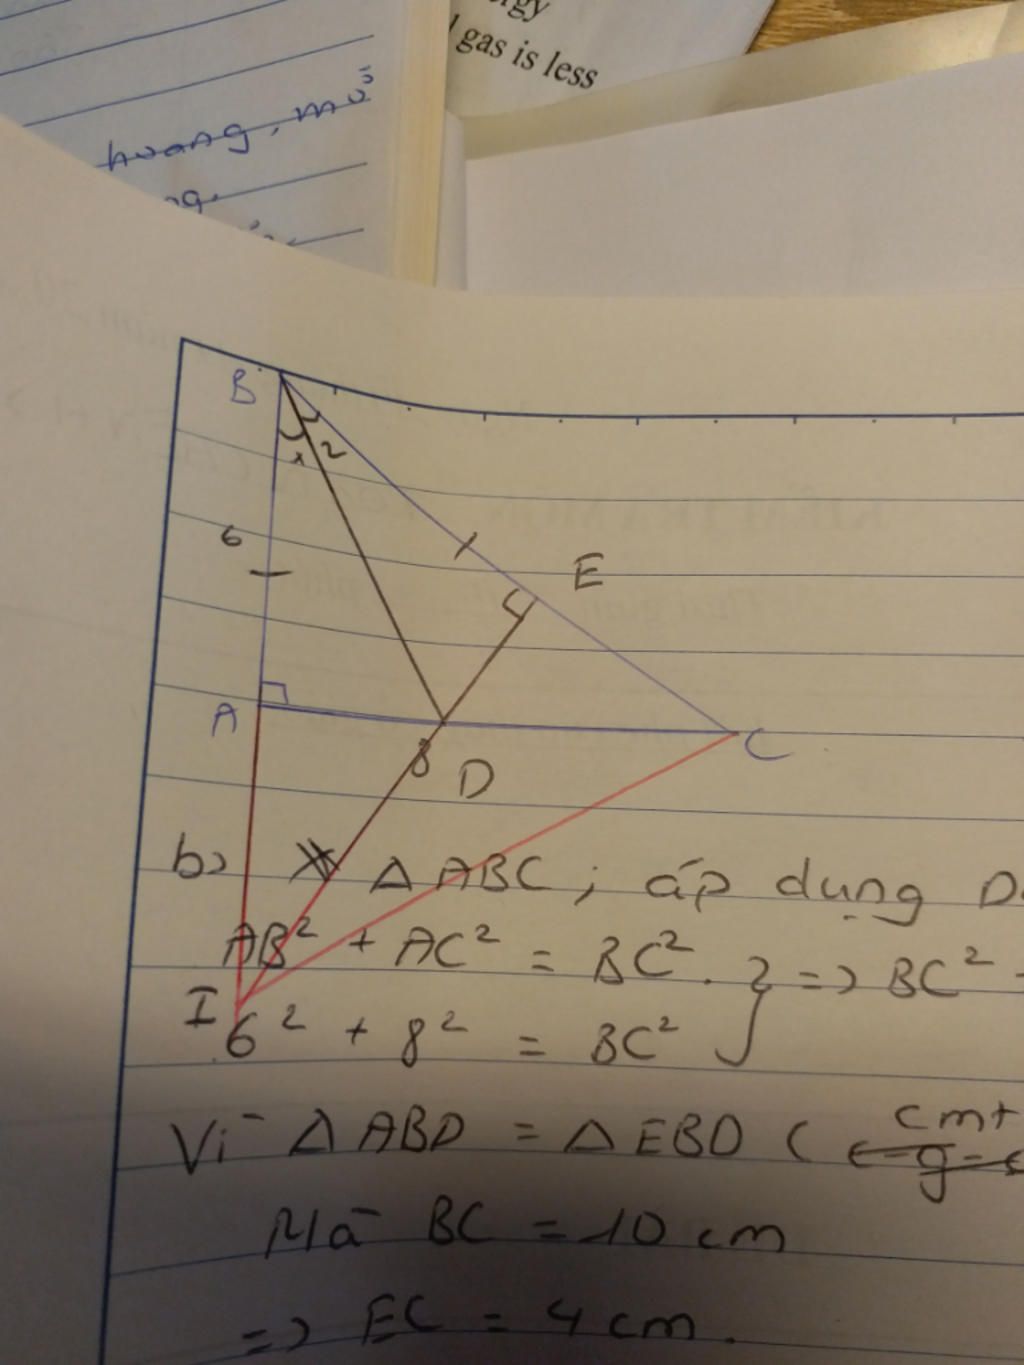 gas is less
hoang, mủ
B
1 2
6
E
A
C
8 D
b) Δ ABC ; áp dụng
AB² + AC² = BC². } => BC²
I
6² + 8² = BC²
Vì Δ ABD = Δ EBD ( cmt
Mà BC = 10 cm
=> EC = 4 cm.